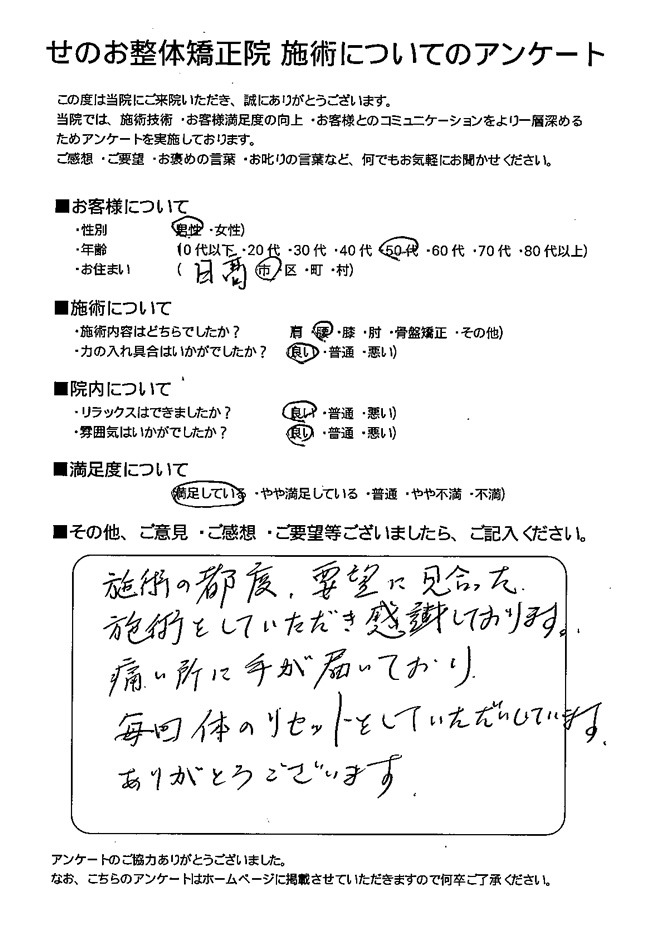 せのお整体矯正院 施術についてのアンケート
この度は当院にご来院いただき、誠にありがとうございます。
当院では、施術技術・お客様満足度の向上・お客様とのコミュニケーションをより一層深める
ためアンケートを実施しております。
ご感想・ご要望・お褒めの言葉・お叱りの言葉など、何でもお気軽にお聞かせください。
■お客様について
・性別 男性・女性)
・年齢 10代以下・20代・30代・40代・50代・60代・70代・80代以上)
・お住まい ( 日高 市・区・町・村)
■施術について
・施術内容はどちらでしたか? 肩・腰・膝・肘・骨盤矯正・その他)
・力の入れ具合はいかがでしたか? 良い・普通・悪い)
■院内について
・リラックスはできましたか? 良い・普通・悪い)
・雰囲気はいかがでしたか? 良い・普通・悪い)
■満足度について
満足している・やや満足している・普通・やや不満・不満)
■その他、ご意見・ご感想・ご要望等ございましたら、ご記入ください。
施術の都度、要望に見合った
施術をしていただき感謝しております。
痛い所に手が届いており
毎回体のリセットをしていただいています。
ありがとうございます。
アンケートのご協力ありがとうございました。
なお、こちらのアンケートはホームページに掲載させていただきますので何卒ご了承ください。